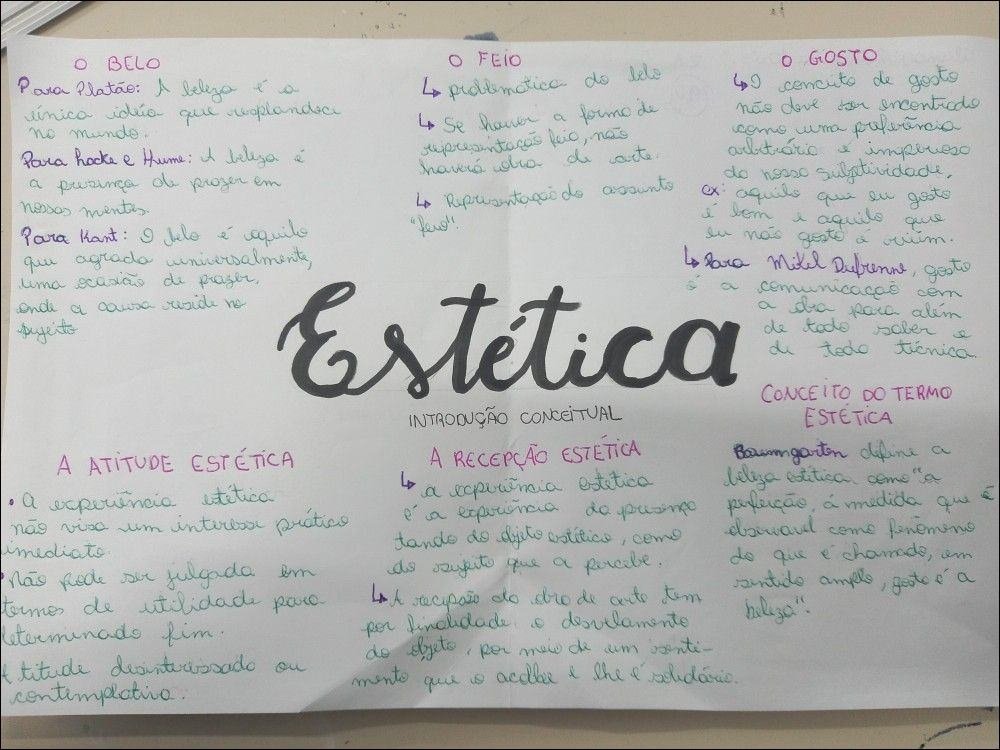 O BELO
Para Platão: A beleza é a
única idéia que resplandece
no mundo.
Para Locke e Hume: A beleza é
a presença de prazer em
nossas mentes.
Para Kant: O belo é aquilo
que agrada universalmente,
uma ocasião de prazer,
onde a causa reside no
sujeito
O FEIO
↳ problemática do belo
↳ Se houver a forma de
representação feio, não
haverá obra de arte.
↳ Representação do assunto
"feio".
O GOSTO
↳ O conceito de gosto
não deve ser encontrado
como uma preferência
arbitrária e imperiosa
da nossa subjetividade,
ex: aquilo que eu gosto
é bom e aquilo que
eu não gosto é ruim.
↳ Para Mikel Dufrenne, gosto
é a comunicação com
a obra para além
de todo saber e
de toda técnica
Estética
INTRODUÇÃO CONCEITUAL
A ATITUDE ESTÉTICA
• A experiência estética
não visa um interesse prático
imediato.
• Não pode ser julgada em
termos de utilidade para
determinado fim.
Atitude desinteressada ou
contemplativa.
A RECEPÇÃO ESTÉTICA
↳ a experiência estética
é a experiência da presença
tando do objeto estético, como
do sujeito que a percebe.
↳ A recepsão da obra de arte tem
por finalidade o desvelamento
do objeto, por meio de um senti-
mento que o acolhe e lhe é solidário.
CONCEITO DO TERMO
ESTÉTICA
Baumgarten define a
beleza estética como "a
perfeição, á medida que é
observavel como fenômeno
do que é chamado, em
sentido amplo, gosto é a
beleza".